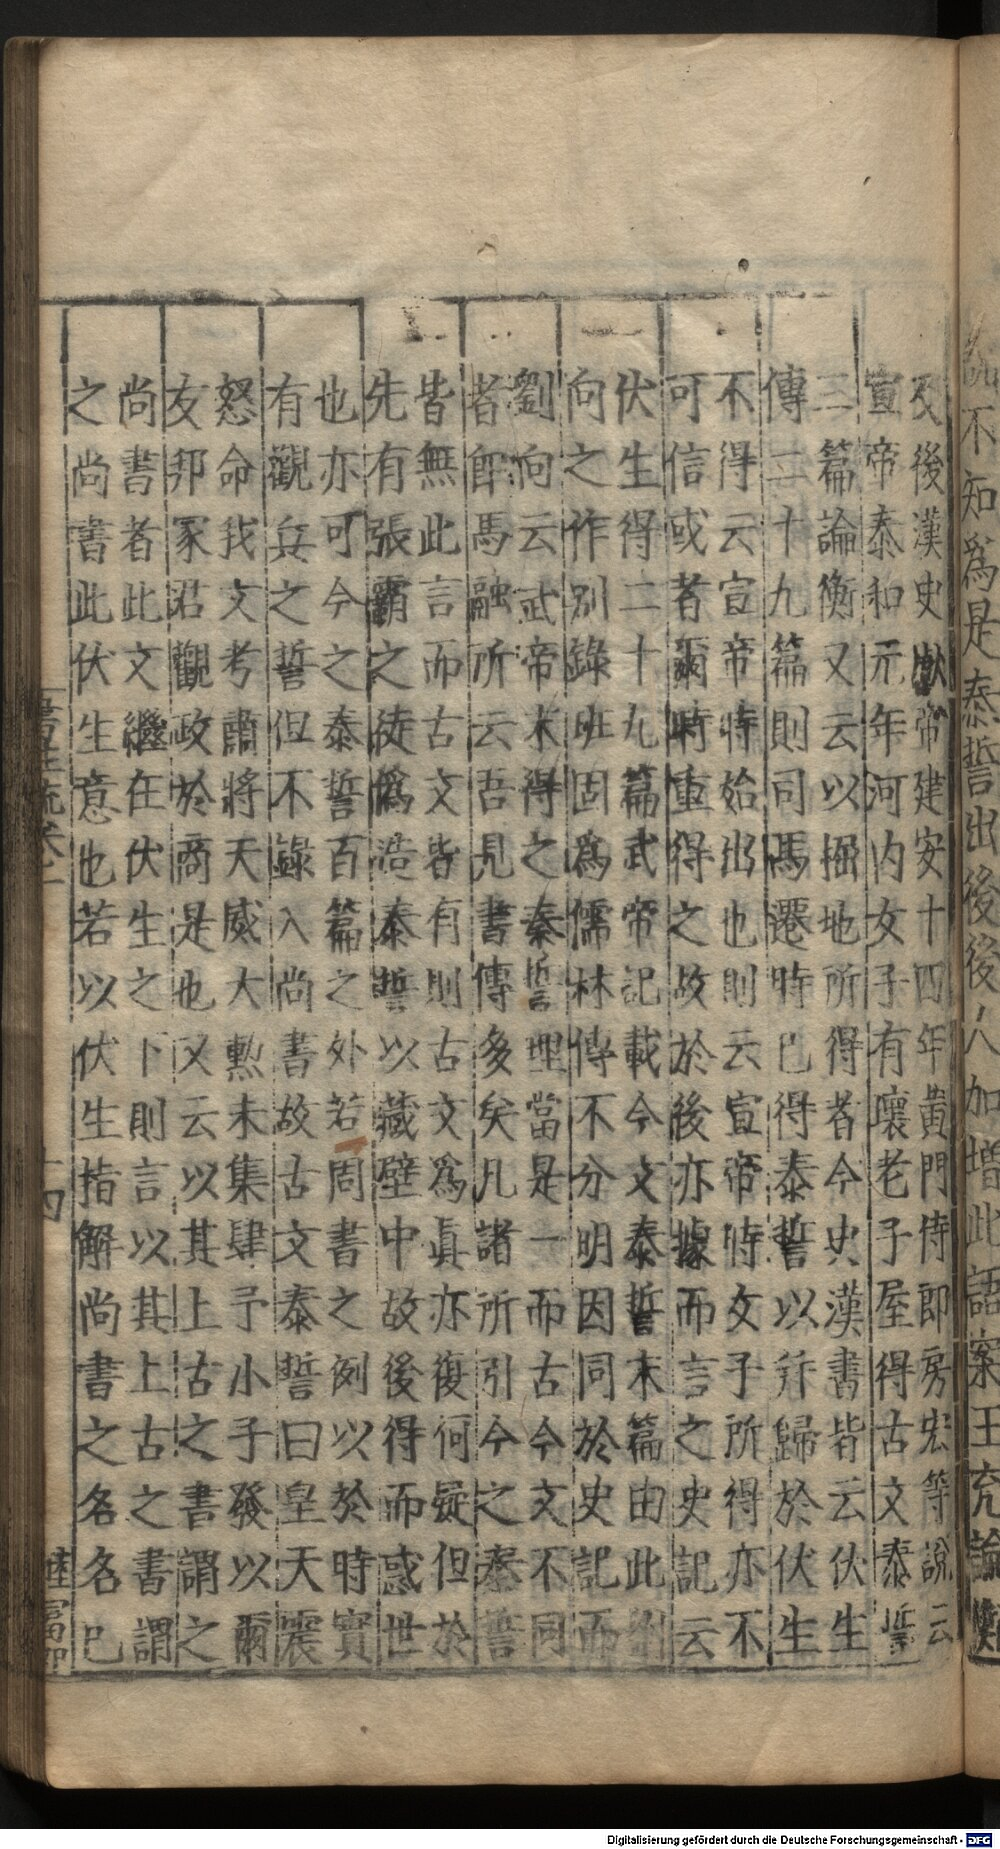 不知爲是泰誓出後後人加增此語案王充論衡
及後漢史獻帝建安十四年黃門侍郎房宏等說云
宣帝泰和元年河內女子有壞老子屋得古文泰誓
三篇論衡又云以掘地所得者今史漢書皆云伏生
傳二十九篇則司馬遷時已得泰誓以并歸於伏生
不得云宣帝時始出也則云宣帝時女子所得亦不
可信或者爾時重得之故於後亦據而言之史記云
伏生得二十九篇武帝記載今文泰誓末篇由此劉
向之作別錄班固爲儒林傳不分明因同於史記而
劉向云武帝末得之泰誓理當是一而古今文不同
者即馬融所云吾見書傳多矣凡諸所引今之泰誓
皆無此言而古文皆有則古文爲眞亦復何疑但於
先有張霸之徒僞造泰誓以藏壁中故後得而惑世
也亦可今之泰誓百篇之外若周書之例以於時實
有觀兵之誓但不錄入尚書故古文泰誓曰皇天震
怒命我文考肅將天威大勲未集肆予小子發以爾
友邦冢君觀政於商是也又云以其上古之書謂之
尚書者此文繼在伏生之下則言以其上古之書謂
之尚書此伏生意也若以伏生指解尚書之名名已
Digitalisierung gefördert durch die Deutsche Forschungsgemeinschaft - DFG